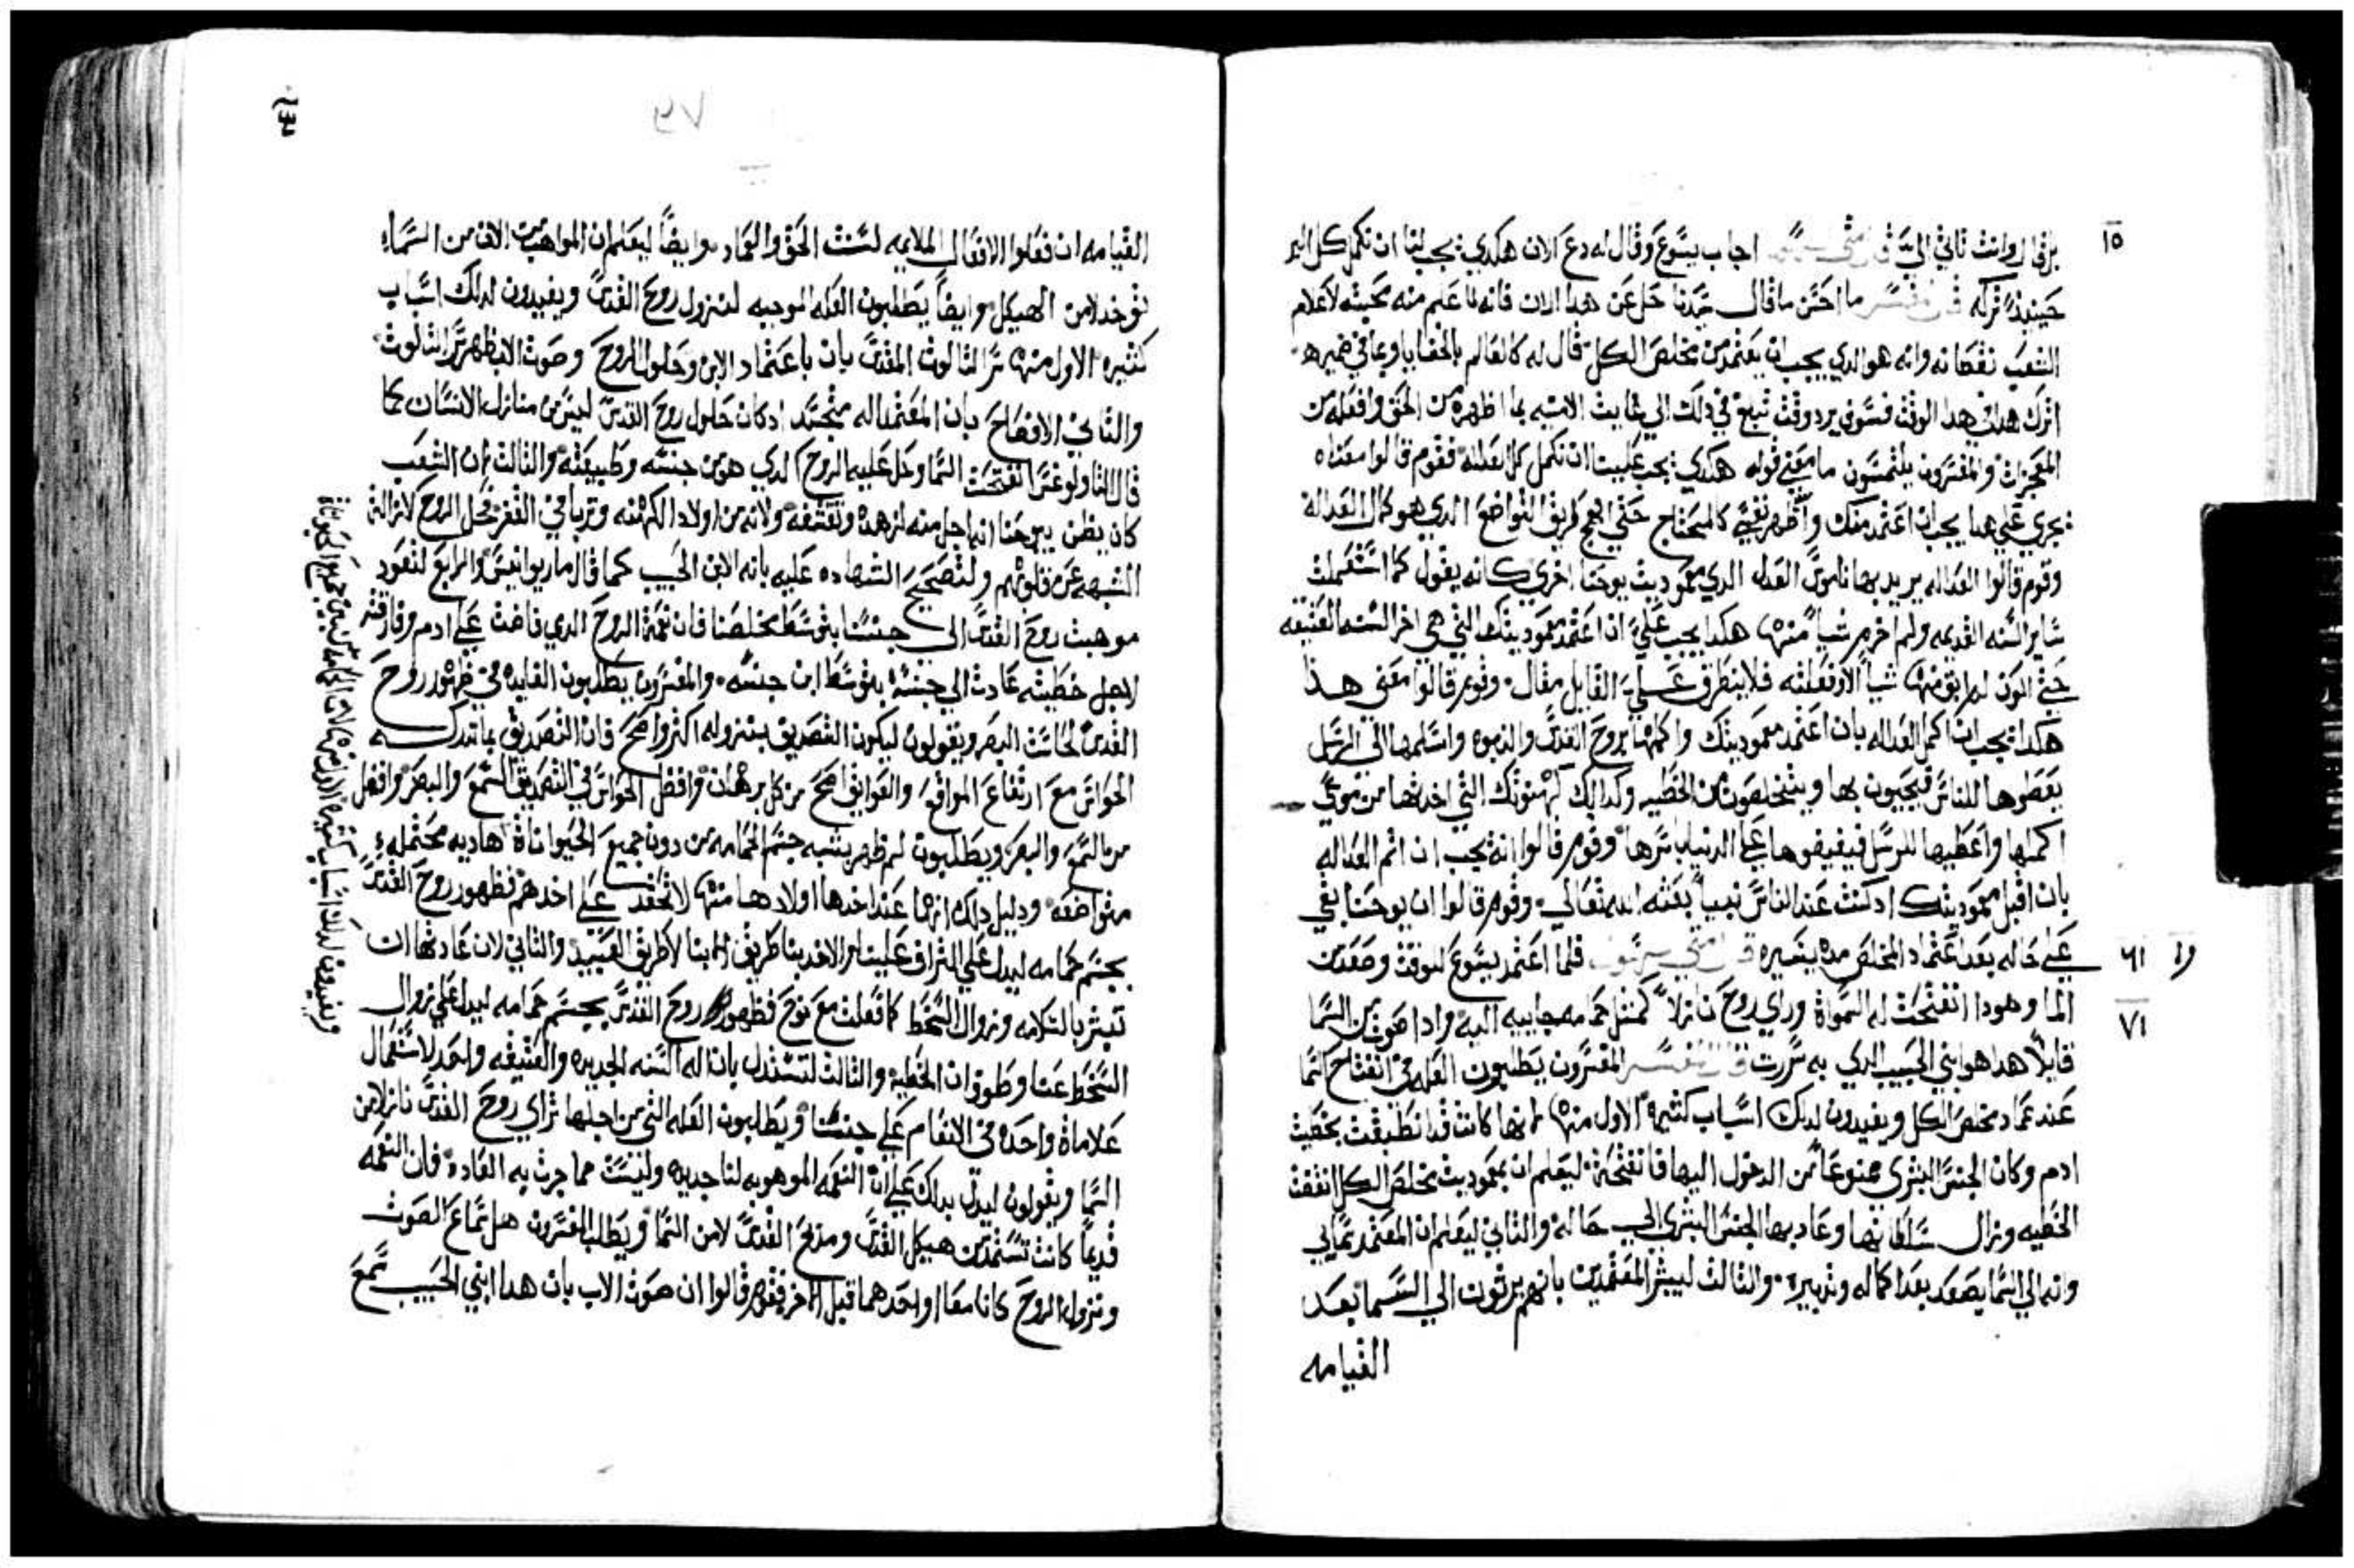 ١٥
وانت تاتي الي اجاب يسوع وقال له دع الان هكدي يجب لنا ان نكمل كل البر
حينيذ تركه ما احسن ما قال سيدنا حل عن هدا الان فانه لما علم منه محبته لاعلام
الشعب نقصانه وانه هو الدي يجب ان يعتمد من مخلص الكل قال له كالعالم بالخفايا وبما في ضميره
اترك هدا في هدا الوقت فسوف يرد وقت تبلغ في دلك الي بما اظهره من الحق وافعله من
المعجزات والمفسرون يلتمسون ما معني قوله هكدي يجب علينا ان نكمل كل العداله فقوم قالوا معناه
يجري علي هدا يجب ان اعتمد منك واظهر نفسي كالمحتاج حتي طريق التواضع الدي هو كمال العداله
وقوم قالوا العداله يريد بها ناموس العدل الدي معموديت يوحنا اخري كانه يقول كما استعملت
ساير السنه القديمه ولم اخرم شيا منها هكدا يجب علي ان اعتمد بمعموديتك التي هي اخر السنه العتيقه
حتي اكون لم ابق منها شيا الا وفعلته فلا يتطرق علي القايل مقال وقوم قالوا معني هدا
هكدا يجب ان اكمل العداله بان اعتمد بمعموديتك واكملها بروح القدس والنبوه واسلمها الي الرسل
يعطوها للناس فيحيون بها ويتخلصون من الخطيه وكدالك كهنوتك التي اخدتها من موسي
اكملها واعطيها للرسل فيفيضوها علي الدنيا باسرها وقوم قالوا انه يجب ان اتم العداله
بان اقبل معموديتك ادكنت عند الناس نبيا بعثه الله تعالي وقوم قالوا ان يوحنا بقي
علي حاله بعد اعتماد المخلص مده يسيره فلما اعتمد يسوع للوقت وصعد من ١٦
الما وهودا انفتحت له السمواة وراي روح نازلا كمثل حمامه جاييه اليه وادا صوت من السما ١٧
قايلا هدا هو ابني الحبيب الدي به سررت المفسرون يطلبون العله في انفتاح السما
عند عماد مخلص الكل ويفيدون لدلك اسباب كثيره الاول منها انها كانت قد انطبقت بخطيت
ادم وكان الجنس البشري ممنوعا من الدخول اليها فانفتحت ليعلم ان بمعموديت مخلص الكل انتقضت
الخطيه وزال سلطانها وعاد بها الجنس البشري الي حاله والتاني ليعلم ان المعتمد سمايي
وانه الي السما يصعد بعد اكماله وتدبيره والتالت ليبشر المعتمدين بانهم يرتون الي السما بعد
القيامه
القيامه ان فعلوا الافعال الملايمه لسنت الحق والعماد وايضا ليعلم ان المواهب من الان من السماء
توخد لا من الهيكل وايضا يطلبون العله الموجبه لنزول روح القدس ويفيدون لدلك اسباب
كثيره الاول منها سر التالوث المقدس بان باعتماد الابن وحلول الروح وصوت الاب ظهر سر التالوث
والتاني الافصاح بان المعتمد اله متجسد ادكان حلول روح القدس ليس من منازل الانسان كما
قال التاولوغس انفتحت السما وحل عليه الروح الدي هو من جنسه وطبيعته والتالت ان الشعب
كان يظن يوحنا انه اجل منه لزهده وتقشفه ولانه من اولاد الكهنه وتربا في القفر فحل الروح لازالة
الشبهه عن قلوبهم ولتصحيح الشهاده عليه بانه الابن الحبيب كما قال ماريوانيس والرابع لتعود
موهبت روح القدس الي جنسنا بتوسط مخلصنا فان نعمة الروح الدي فاضت علي ادم وفارقته
لاجل خطيته عادت الي جنسه بتوسط ابن جنسه والمفسرون يطلبون الفايده في ظهور روح
القدس لحاست البصر ويقولون ليكون التصديق بنزوله اكثر واصح فان التصديق بما تدركه
الحواس مع ارتفاع الموانع والعوايق اصح من كل برهان وافضل الحواس في التصديق السمع والبصر وافضل
من السمع والبصر ويطلبون لم ظهر بشبه جسم الحمامه من دون جميع الحيواناة هاديه محتمله
متواضعه ودليل دلك انها عند اخدها اولادها منها لا تحقد علي اخدهم فظهور روح القدس
بجسم حمامه ليدل علي اشراف علينا والاخد بنا طريق البنا لا طريق العبيد والتاني لان عادتها ان
تبشر بالسلامه وزوال السخط كما فعلت مع نوح فظهور روح القدس بجسم حمامه ليدل علي زوال
السخط عنا وطوفان الخطية والتالت لتستدل بان اله السنه الجديده والعتيقه واحد لاستعمال
علاماة واحده في الانعام علي جنسنا ويطلبون العله التي من اجلها تراي روح القدس نازلا من
السما ويقولون ليدل بدلك علي ان النعمه الموهوبه لنا جديده وليست مما جرت به العاده فان النعمه
قديما كانت تستمد من هيكل القدس ومدبح القدس لا من السما ويطلب المفسرون هل سماع الصوت
ونزول الروح كانا معا او احدهما قبل الاخر فقوم قالوا ان صوت الاب بان هدا ابني الحبيب سمع
ويفيدون لدلك اسباب كثيره الاول منها من بين جميع الحيواناة